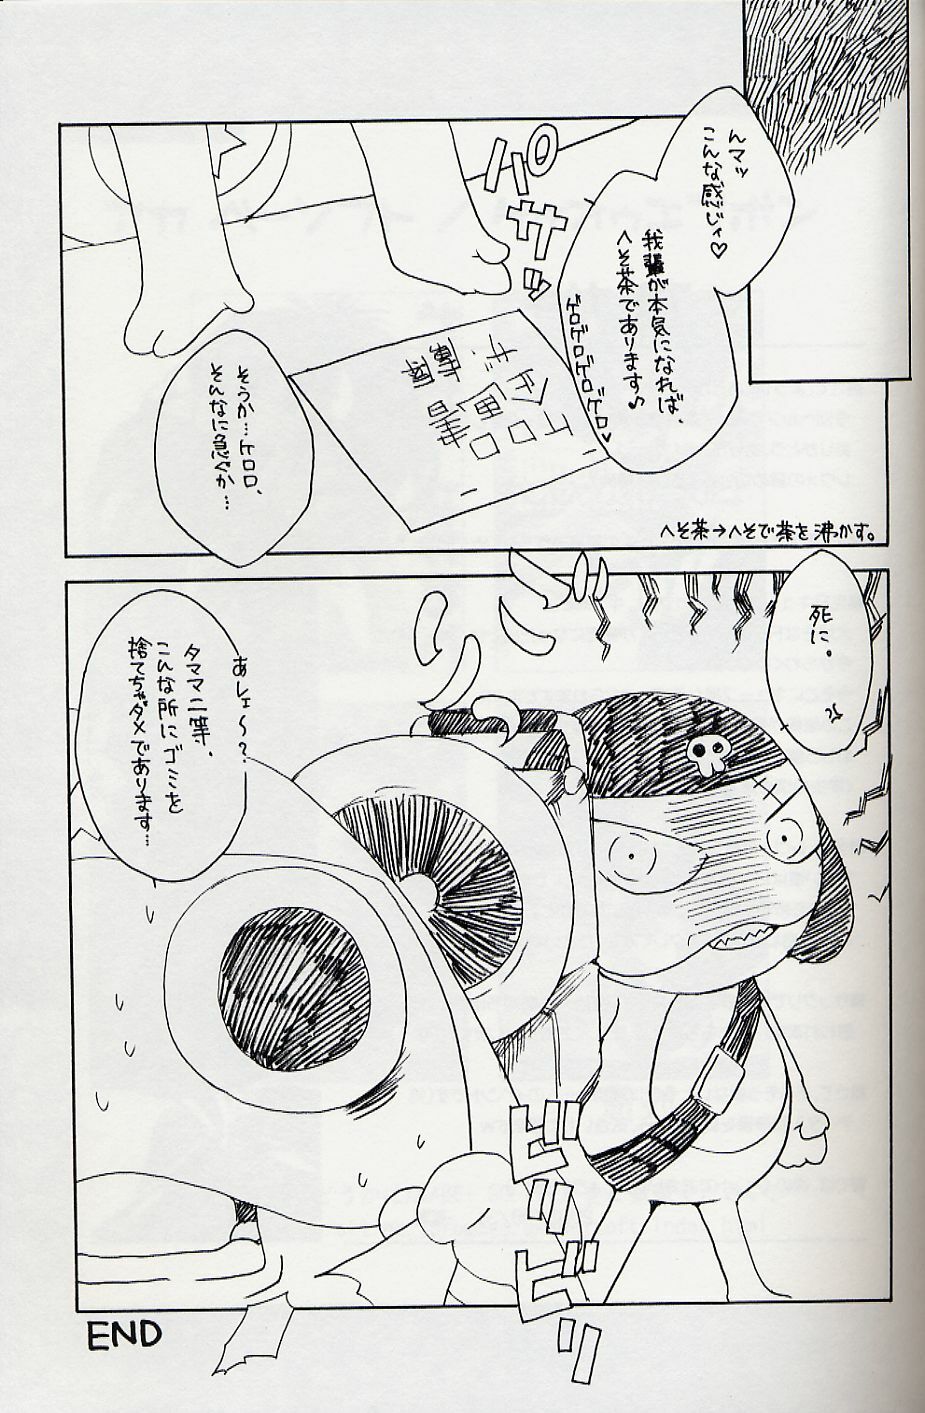 んマッ
こんな感じィ♡
我輩が本気になれば、
へそ茶であります♪
ゲロゲロゲロゲロ♥
パサッ
そうか…ケロロ、
そんなに急ぐか…
へそ茶→へそで茶を沸かす。
死に。
あレェ〜?
タママ二等、
こんな所にゴミを
捨てちゃダメであります…
ビリッ
ビリッ
END